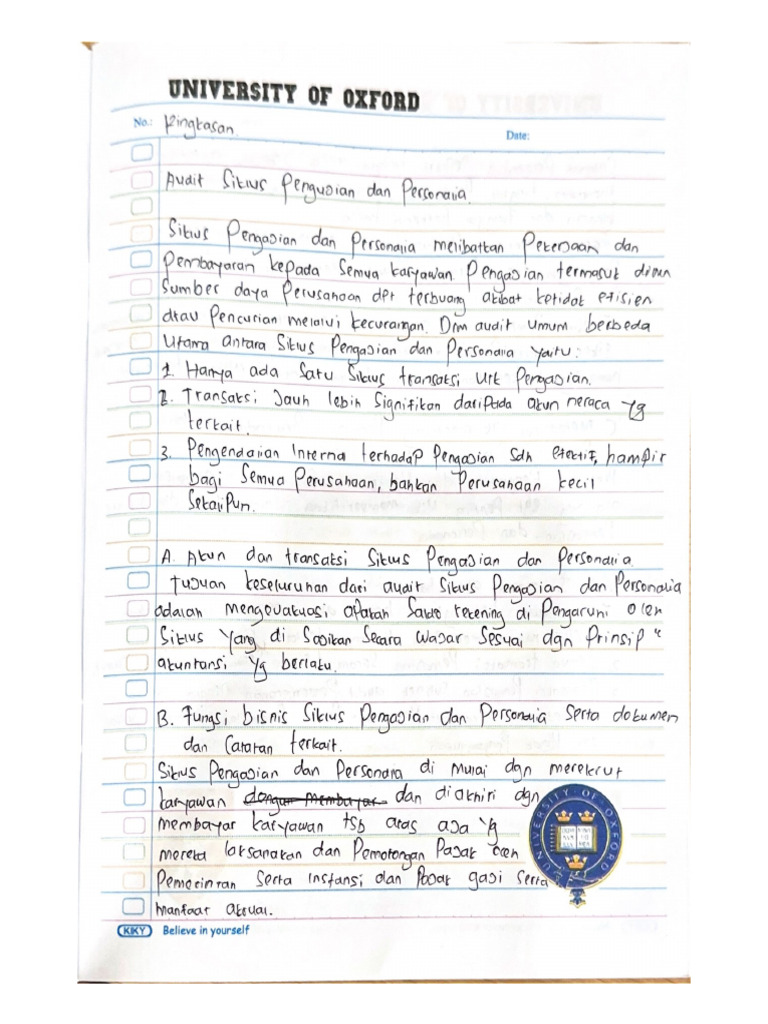 UNIVERSITY OF OXFORD
No.: Ringkasan.
Date:
Audit Siklus Pengujian dan Personalia.
Siklus Pengajian dan Personalia melibatkan Pekerjaan dan
Pembayaran kepada Semua karyawan. Pengajian termasuk dimn
Sumber daya Perusahaan dpt terbuang akibat ketidak efisien
atau Pencurian melalui kecurangan. Dlm audit umum berbeda
Utama antara Siklus Pengajian dan Personalia yaitu:
1. Hanya ada Satu Siklus transaksi utk Pengajian.
2. Transaksi Jauh lebih Signifikan daripada akun neraca yg
terkait.
3. Pengendalian Interna terhadap Pengajian Sdh efektif, hampir
bagi Semua Perusahaan, bahkan Perusahaan kecil
Sekalipun.
A. Akun dan transaksi Siklus Pengajian dan Personalia.
Tujuan keseluruhan dari audit Siklus Pengajian dan Personalia
adalah mengevakuasi apakah Saldo rekening di Pengaruhi oleh
Siklus Yang di Sajikan Secara Wajar Sesuai dgn Prinsip "
akuntansi yg berlaku.
B. Fungsi bisnis Siklus Pengajian dan Personalia Serta dokumen
dan Catatan terkait.
Siklus Pengajian dan Personalia di Mulai dgn merekrut
karyawan dengan membayar dan diakhiri dgn
membayar karyawan tsb atas apa yg
mereka laksanakan dan Pemotongan Pajak oleh
Pemerintah Serta instansi dan Pajak gaji Serta
manfaat akrual.
UNIVERSITY OF OXFORD
KIKY Believe in yourself